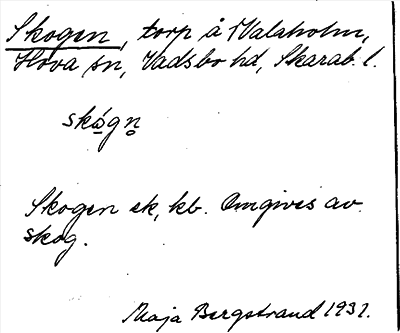 Skogen, torp å Valaholm,
Hova sn, Vadsbo hd, Skarab. l.
skógn̥
Skogen ek, kb. Omgives av
skog.
Maja Bergstrand 1931.